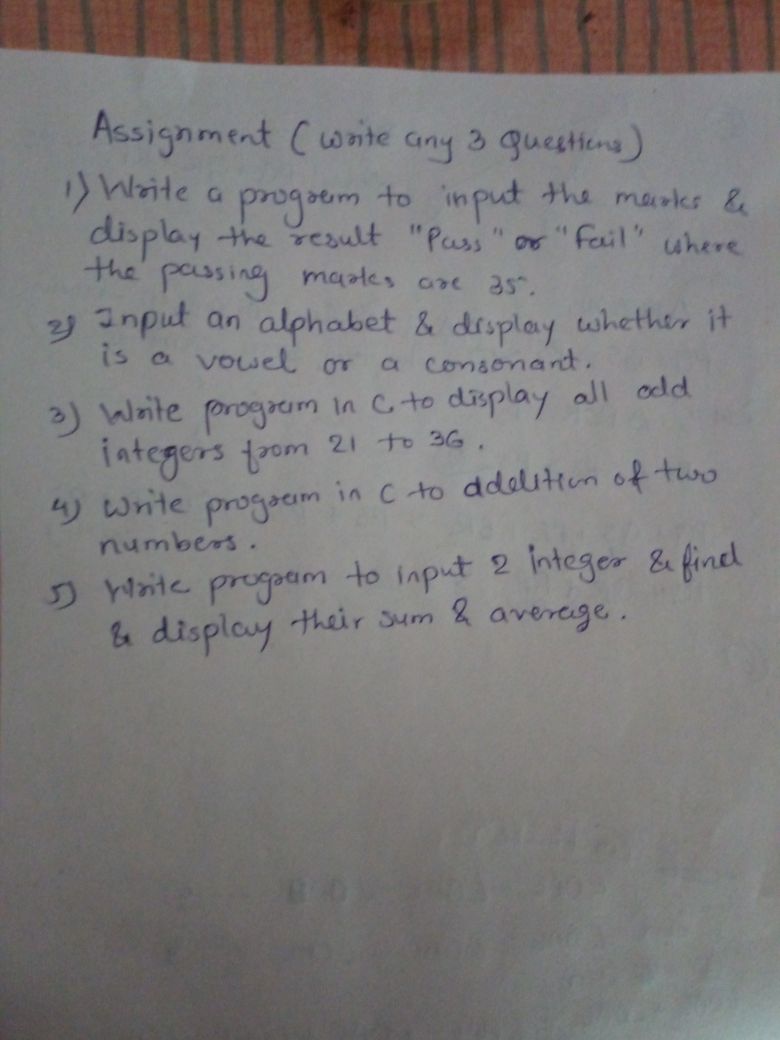 Assignment (write any 3 Questions)
1) Write a program to input the marks &
display the result "Pass" or "Fail" where
the passing marks are 35.
2) Input an alphabet & display whether it
is a vowel or a consonant.
3) Write program in C to display all odd
integers from 21 to 36.
4) Write program in C to addition of two
numbers.
5) Write program to input 2 integer & find
& display their sum & average.